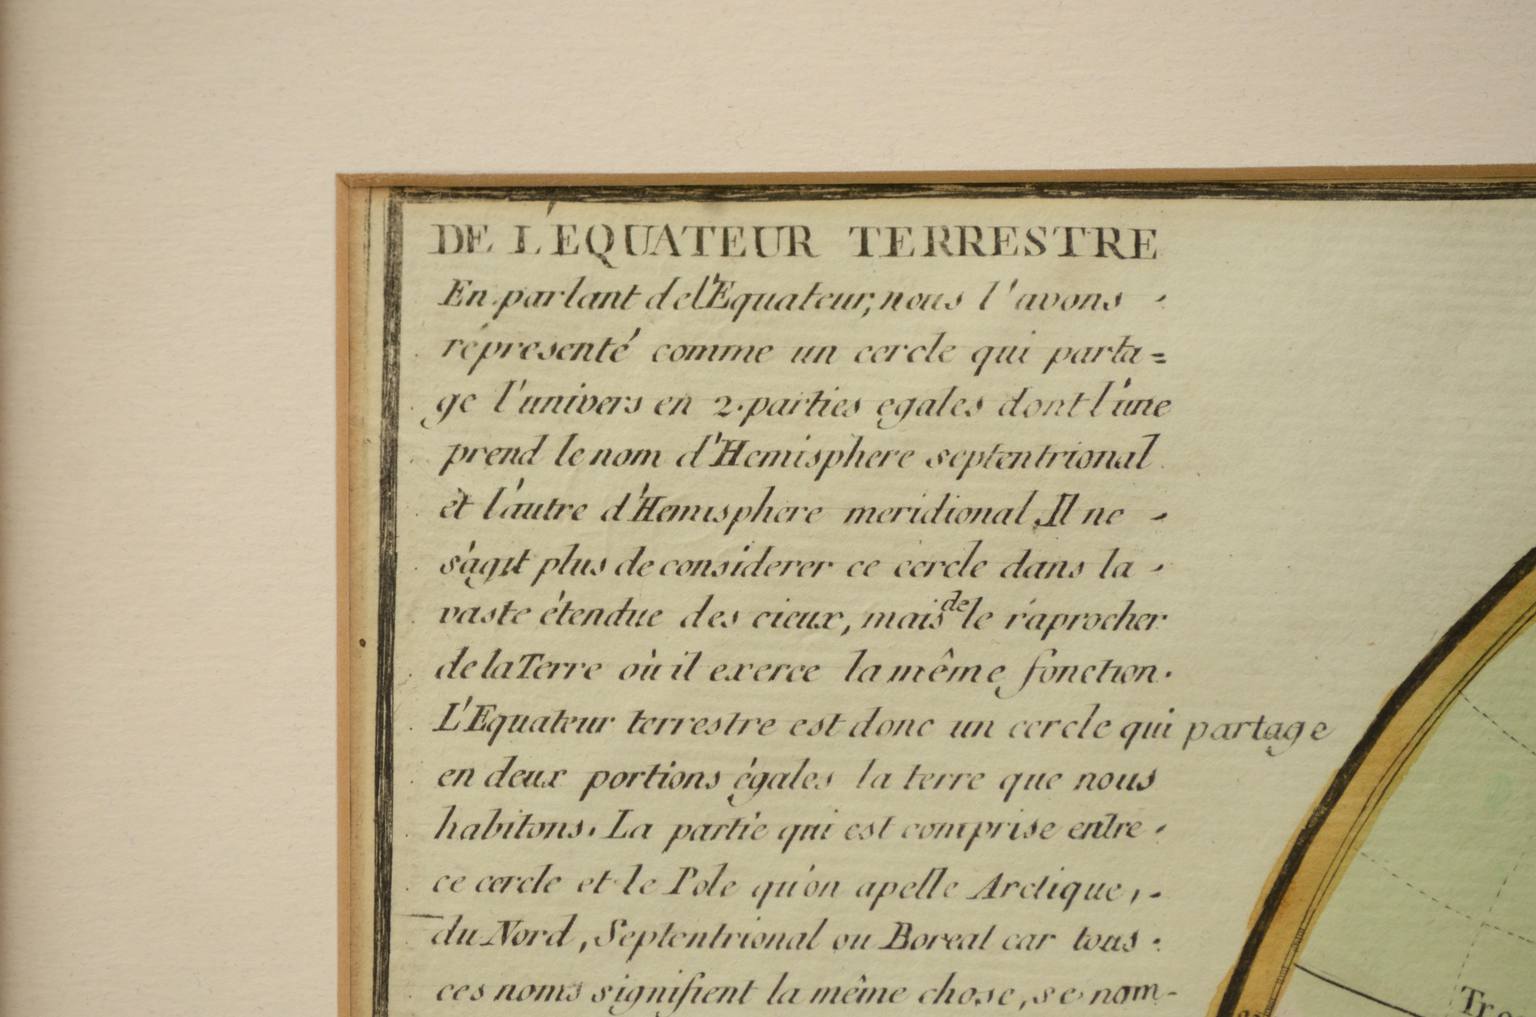 DE L'EQUATEUR TERRESTRE
En parlant de l'Equateur, nous l'avons -
réprésenté comme un cercle qui parta=
ge l'univers en 2. parties egales dont l'une
prend le nom d'Hemisphere septentrional
et l'autre d'Hemisphere meridional, Il ne -
s'agit plus de considerer ce cercle dans la -
vaste étendue des cieux, mais de le raprocher
de la Terre où il exerce la même fonction.
L'Equateur terrestre est donc un cercle qui partage
en deux portions égales la terre que nous
habitons. La partie qui est comprise entre -
ce cercle et le Pole qu'on apelle Arctique, -
du Nord, Septentrional ou Boreal car tous -
ces noms signifient la même chose, se nom-